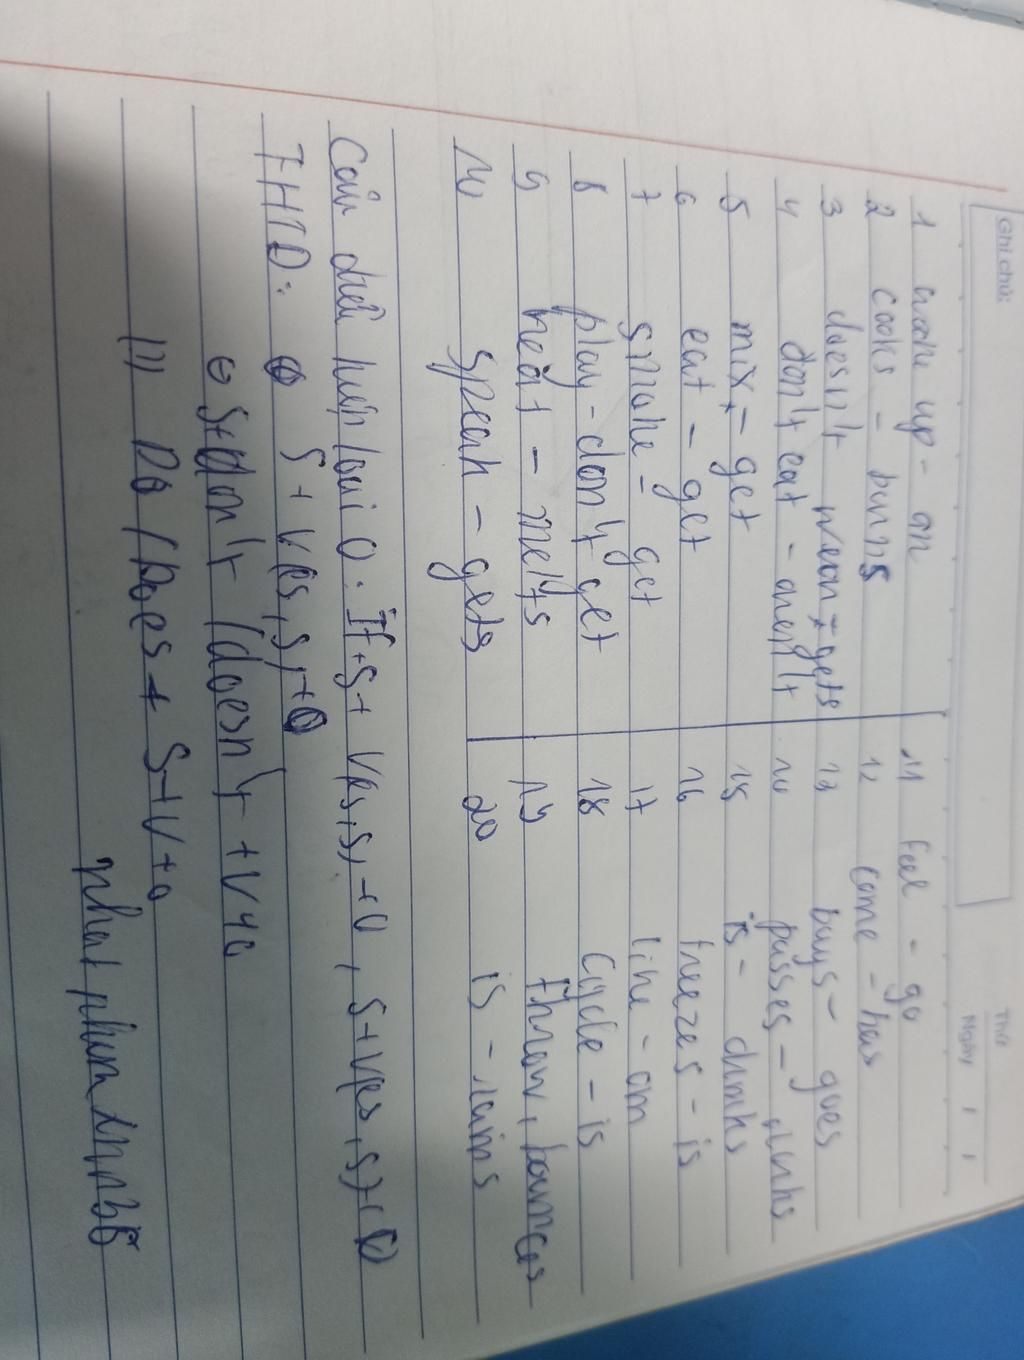 Ghi chú:
Thứ
Ngày / /
1 wake up - am
2 cooks - burns
3 doesn't wear - gets
4 don't eat - aren't
5 mix - get
6 eat - get
7 smoke - get
8 play - don't get
9 heat - melts
10 speak - gets
11 feel - go
12 come - has
13 buys - goes
14 passes - drinks
15 is - drinks
16 freezes - is
17 like - am
18 cycle - is
19 throw, bounces
20 is - rains
Câu điều kiện loại 0: If + S + V(es, s) + O, S + V(es, s) + O
THTD: ⊕ S + V(es, s) + O
⊖ S + don't / doesn't + V + o
(?) Do / Does + S + V + o